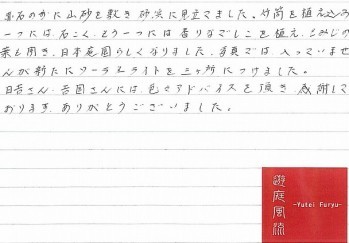 お石のかに山砂を敷き砂浜に見立てました。竹筒を植え込み
一つには石こく、もう一つには香りなでしこを植え、もみじの
葉も開き、日本庭園らしくなりました。写真では入っていませ
んが新たにソーラーライトを三ヶ所につけました。
日吉さん、吉岡さんには、色々アドバイスを頂き、感謝して
おります。ありがとうございました。
遊庭風流
-Yutei Furyu-